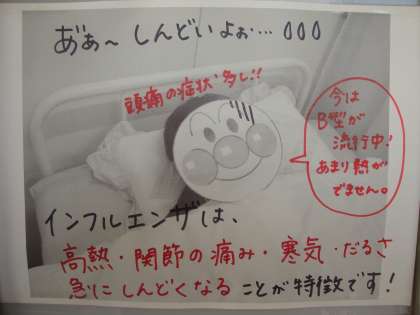 あ゛ぁ〜しんどいよぉ…000
頭痛の症状多し!!
今は
B型が
流行中!
あまり熱が
でません。
インフルエンザは、
高熱・関節の痛み・寒気・だるさ
急にしんどくなることが特徴です!